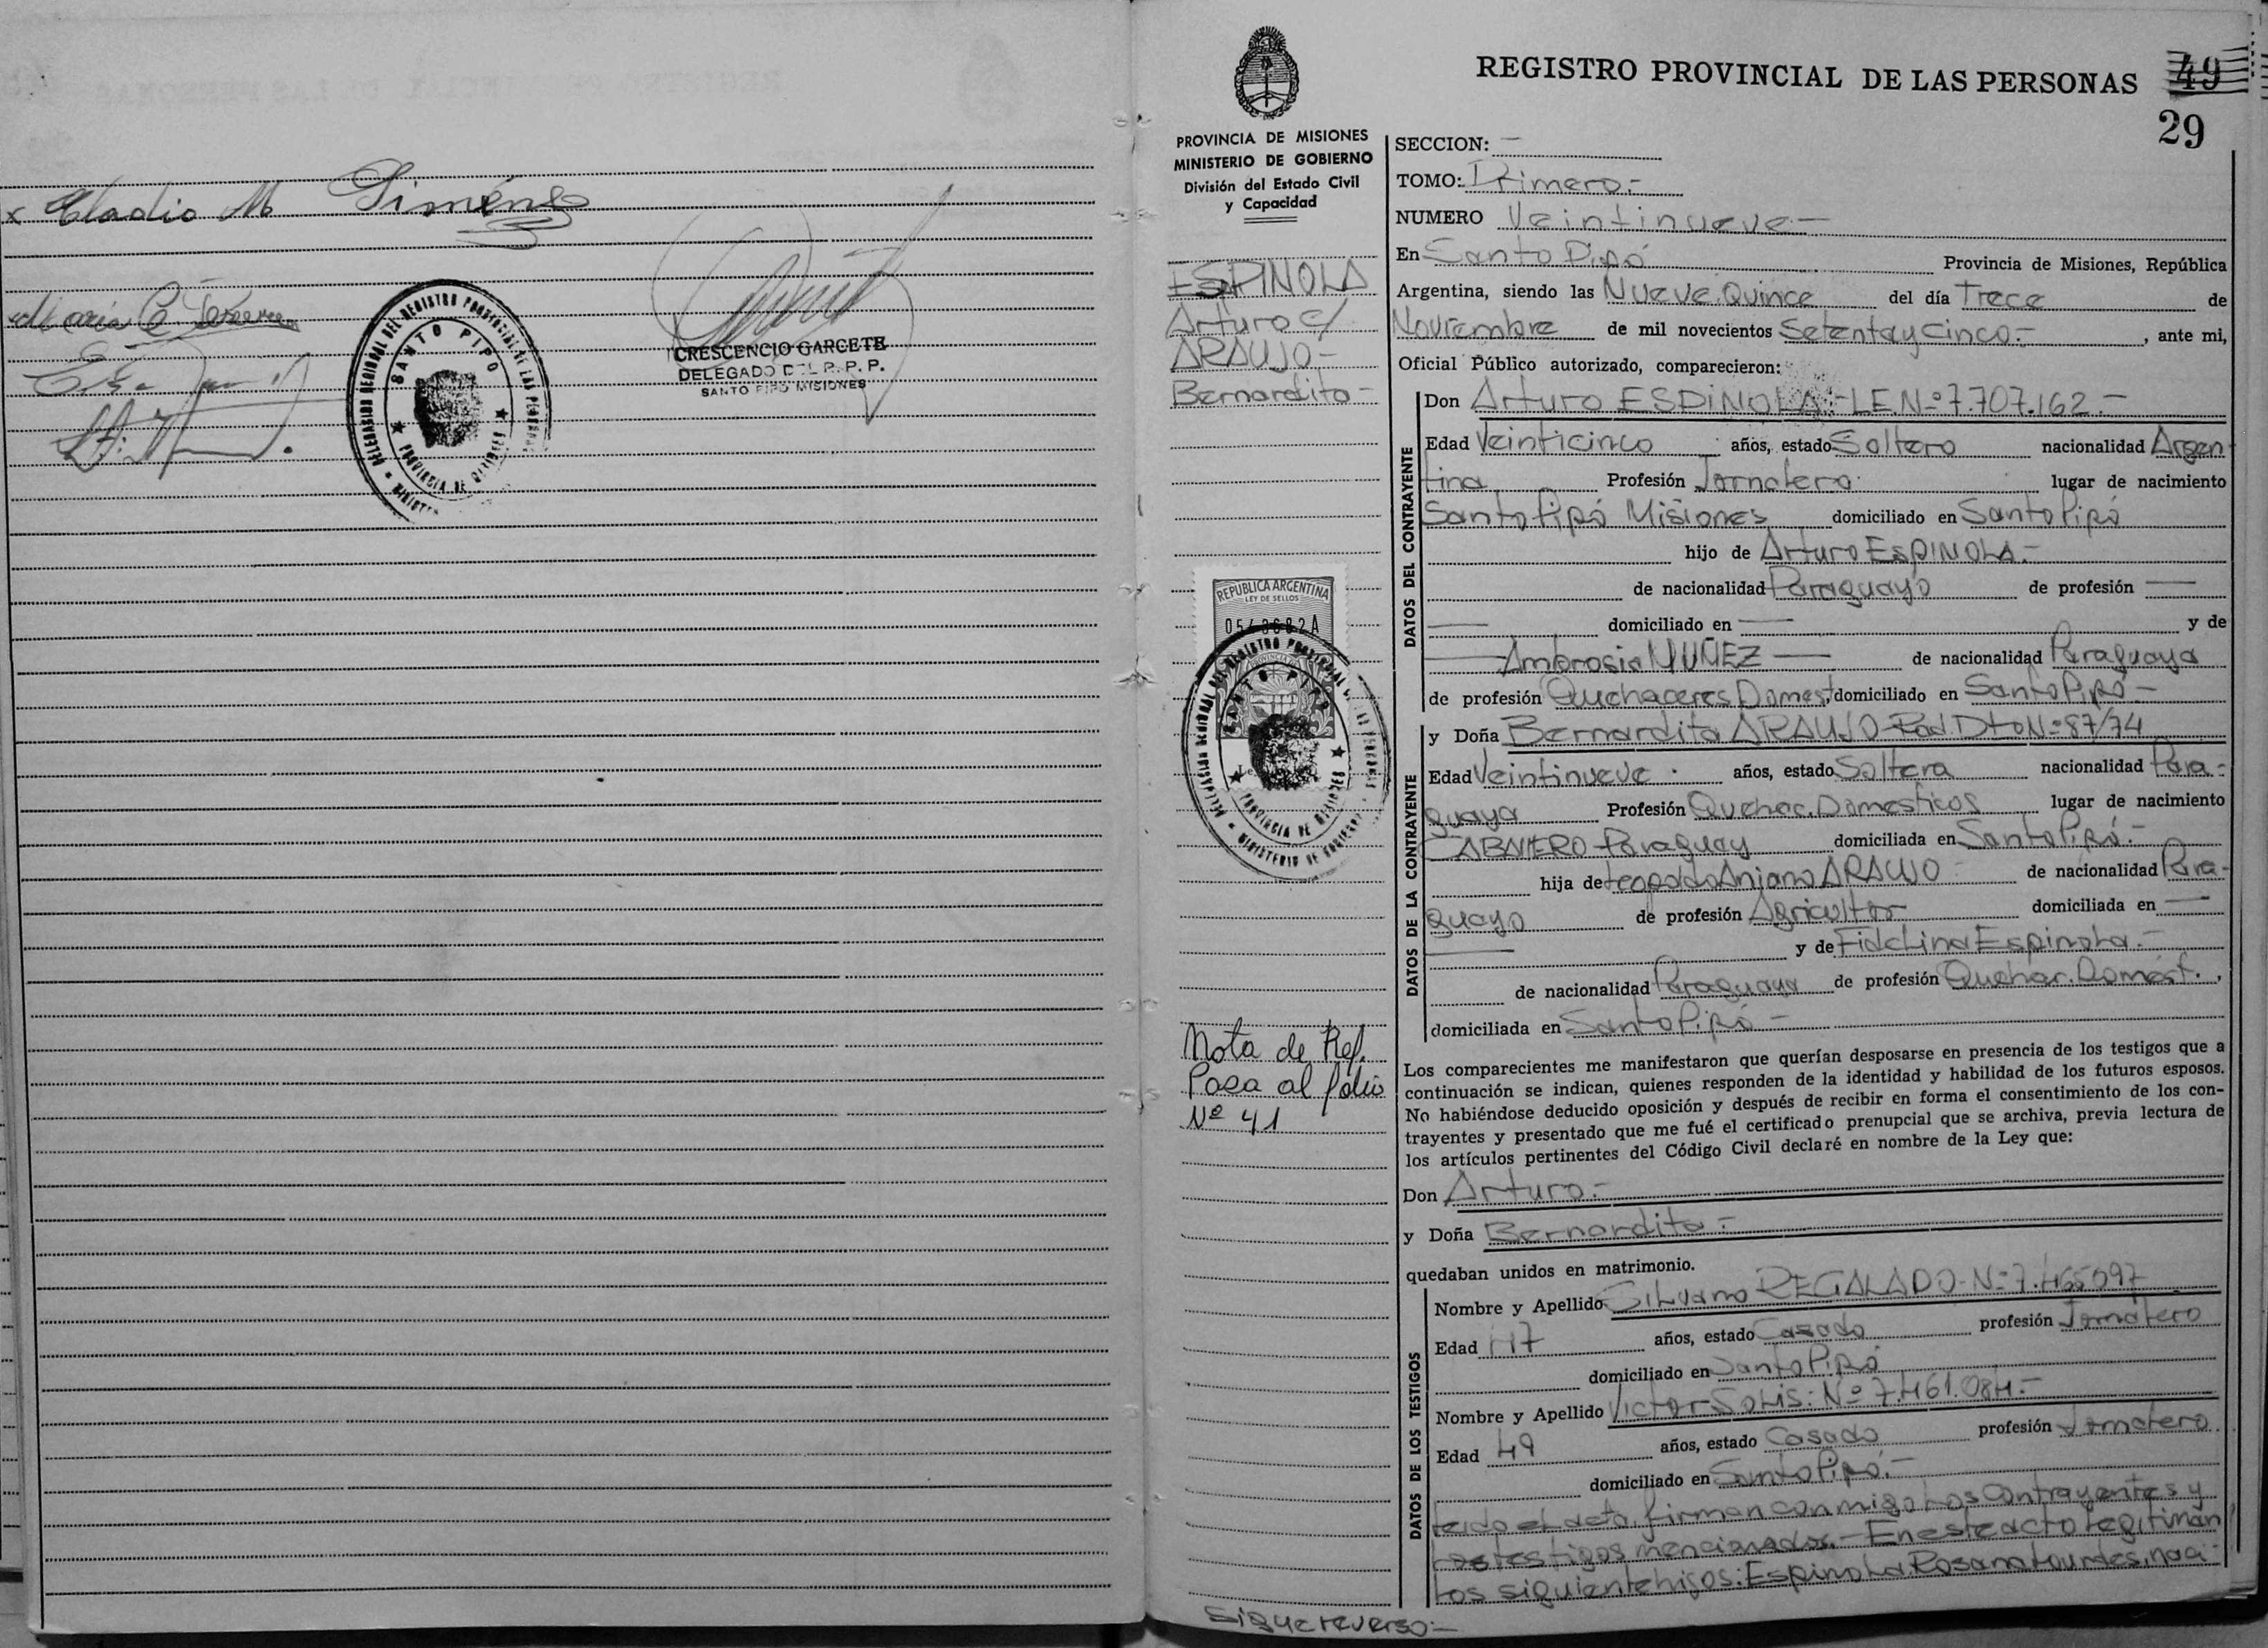 x Cladio M Siménez
Maria C.
DELEGACION REGIONAL DEL REGISTRO PROVINCIAL DE LAS PERSONAS
SANTO PIPO
PROVINCIA DE MISIONES
CRESCENCIO GARCETE
DELEGADO DEL R. P. P.
SANTO PIPO MISIONES
REGISTRO PROVINCIAL DE LAS PERSONAS 49
29
PROVINCIA DE MISIONES
MINISTERIO DE GOBIERNO
División del Estado Civil
y Capacidad
ESPINOLA
Arturo c/
ARAUJO-
Bernardita-
REPUBLICA ARGENTINA
LEY DE SELLOS
DELEGACION REGIONAL DEL REGISTRO PROVINCIAL DE LAS PERSONAS
SANTO PIPO
PROVINCIA DE MISIONES
MINISTERIO DE GOBIERNO
Nota de Ref.
Pasa al folio
Nº 41
SECCION: —
TOMO: Primero.-
NUMERO Veintinueve-
En Santo Pipó Provincia de Misiones, República
Argentina, siendo las Nueve.Quince del día Trece de
Noviembre de mil novecientos Setenta y cinco.- , ante mi,
Oficial Público autorizado, comparecieron:
DATOS DEL CONTRAYENTE
Don Arturo ESPINOLA.-LE.Nº7.707.162.-
Edad Veinticinco años, estado Soltero nacionalidad Argen-
tina Profesión Jornalero lugar de nacimiento
Santo Pipó Misiones domiciliado en Santo Pipó
hijo de Arturo EsPINOLA.-
de nacionalidad Paraguayo de profesión —
— domiciliado en — y de
— Ambrosia NUÑEZ — de nacionalidad Paraguaya
de profesión Quehaceres Domest, domiciliado en Santo Pipó-
DATOS DE LA CONTRAYENTE
y Doña Bernardita ARAUJO-Rad.Dto Nº87/74
Edad Veintinueve. años, estado Soltera nacionalidad Para-
guaya Profesión Quehac.Domesticos lugar de nacimiento
Paraguay domiciliada en Santo Pipó.-
hija de Leopoldo Aniano ARAUJO- de nacionalidad Para-
guayo de profesión Agricultor domiciliada en —
— y de Fidelina Espinola.-
de nacionalidad Paraguaya de profesión Quehac.Domést. ,
domiciliada en Santo Pipó-
Los comparecientes me manifestaron que querían desposarse en presencia de los testigos que a
continuación se indican, quienes responden de la identidad y habilidad de los futuros esposos.
No habiéndose deducido oposición y después de recibir en forma el consentimiento de los con-
trayentes y presentado que me fué el certificado prenupcial que se archiva, previa lectura de
los artículos pertinentes del Código Civil declaré en nombre de la Ley que:
Don Arturo.-
y Doña Bernardita-
quedaban unidos en matrimonio.
DATOS DE LOS TESTIGOS
Nombre y Apellido Silvano REGALADO-Nº7.465097
Edad 47 años, estado Casado profesión Jornalero
domiciliado en Santo Pipó
Nombre y Apellido Victor Solis: Nº 7.461.084.-
Edad 49 años, estado Casado profesión Jornalero
domiciliado en Santo Pipó.-
leido el acta, firman conmigo los contrayentes y
los testigos mencionados.-En este acto legitiman
los siguiente hijos: Espinola Rosana Lourdes, naci-
sigue reverso-